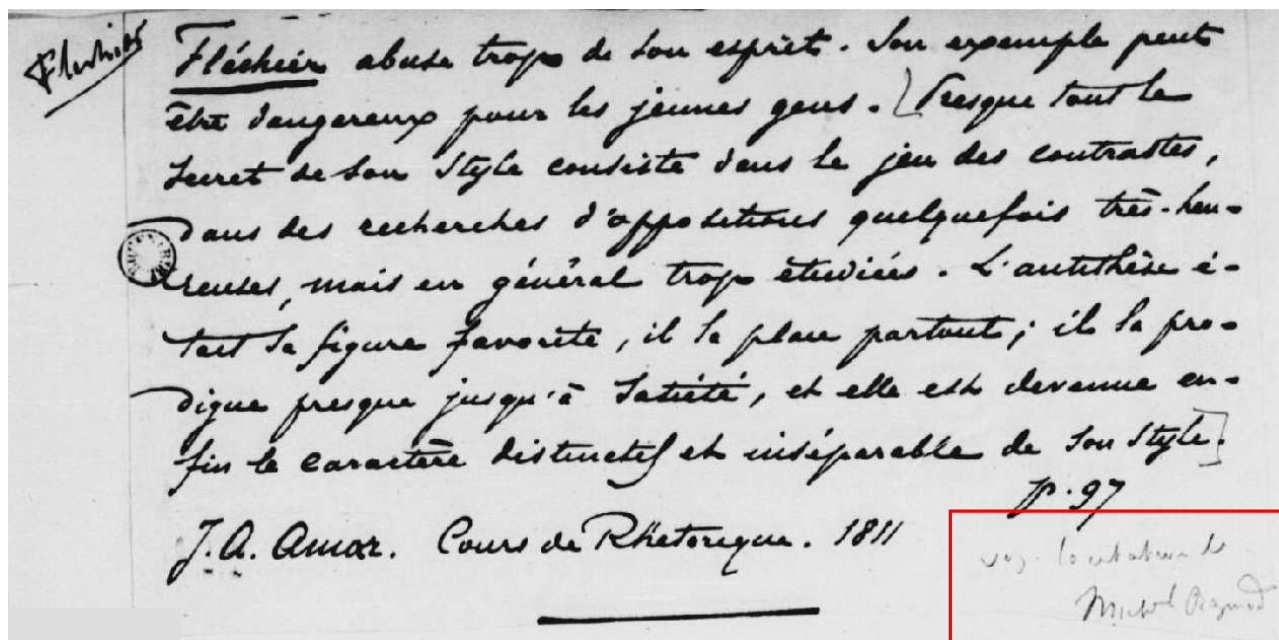 Fléchier
Fléchier abuse trop de son esprit. Son exemple peut
être dangereux pour les jeunes gens. [Presque tout le
secret de son style consiste dans le jeu des contrastes,
dans des recherches d'oppositions quelquefois très-heu-
reuses, mais en général trop étudiées. L'antithèse é-
tait sa figure favorite, il la place partout; il la pro-
digue presque jusqu'à satiété, et elle est devenue en-
fin le caractère distinctif et inséparable de son style.]
p. 97
J. A. Amar. Cours de Rhétorique. 1811
voy. la citation de
Michel